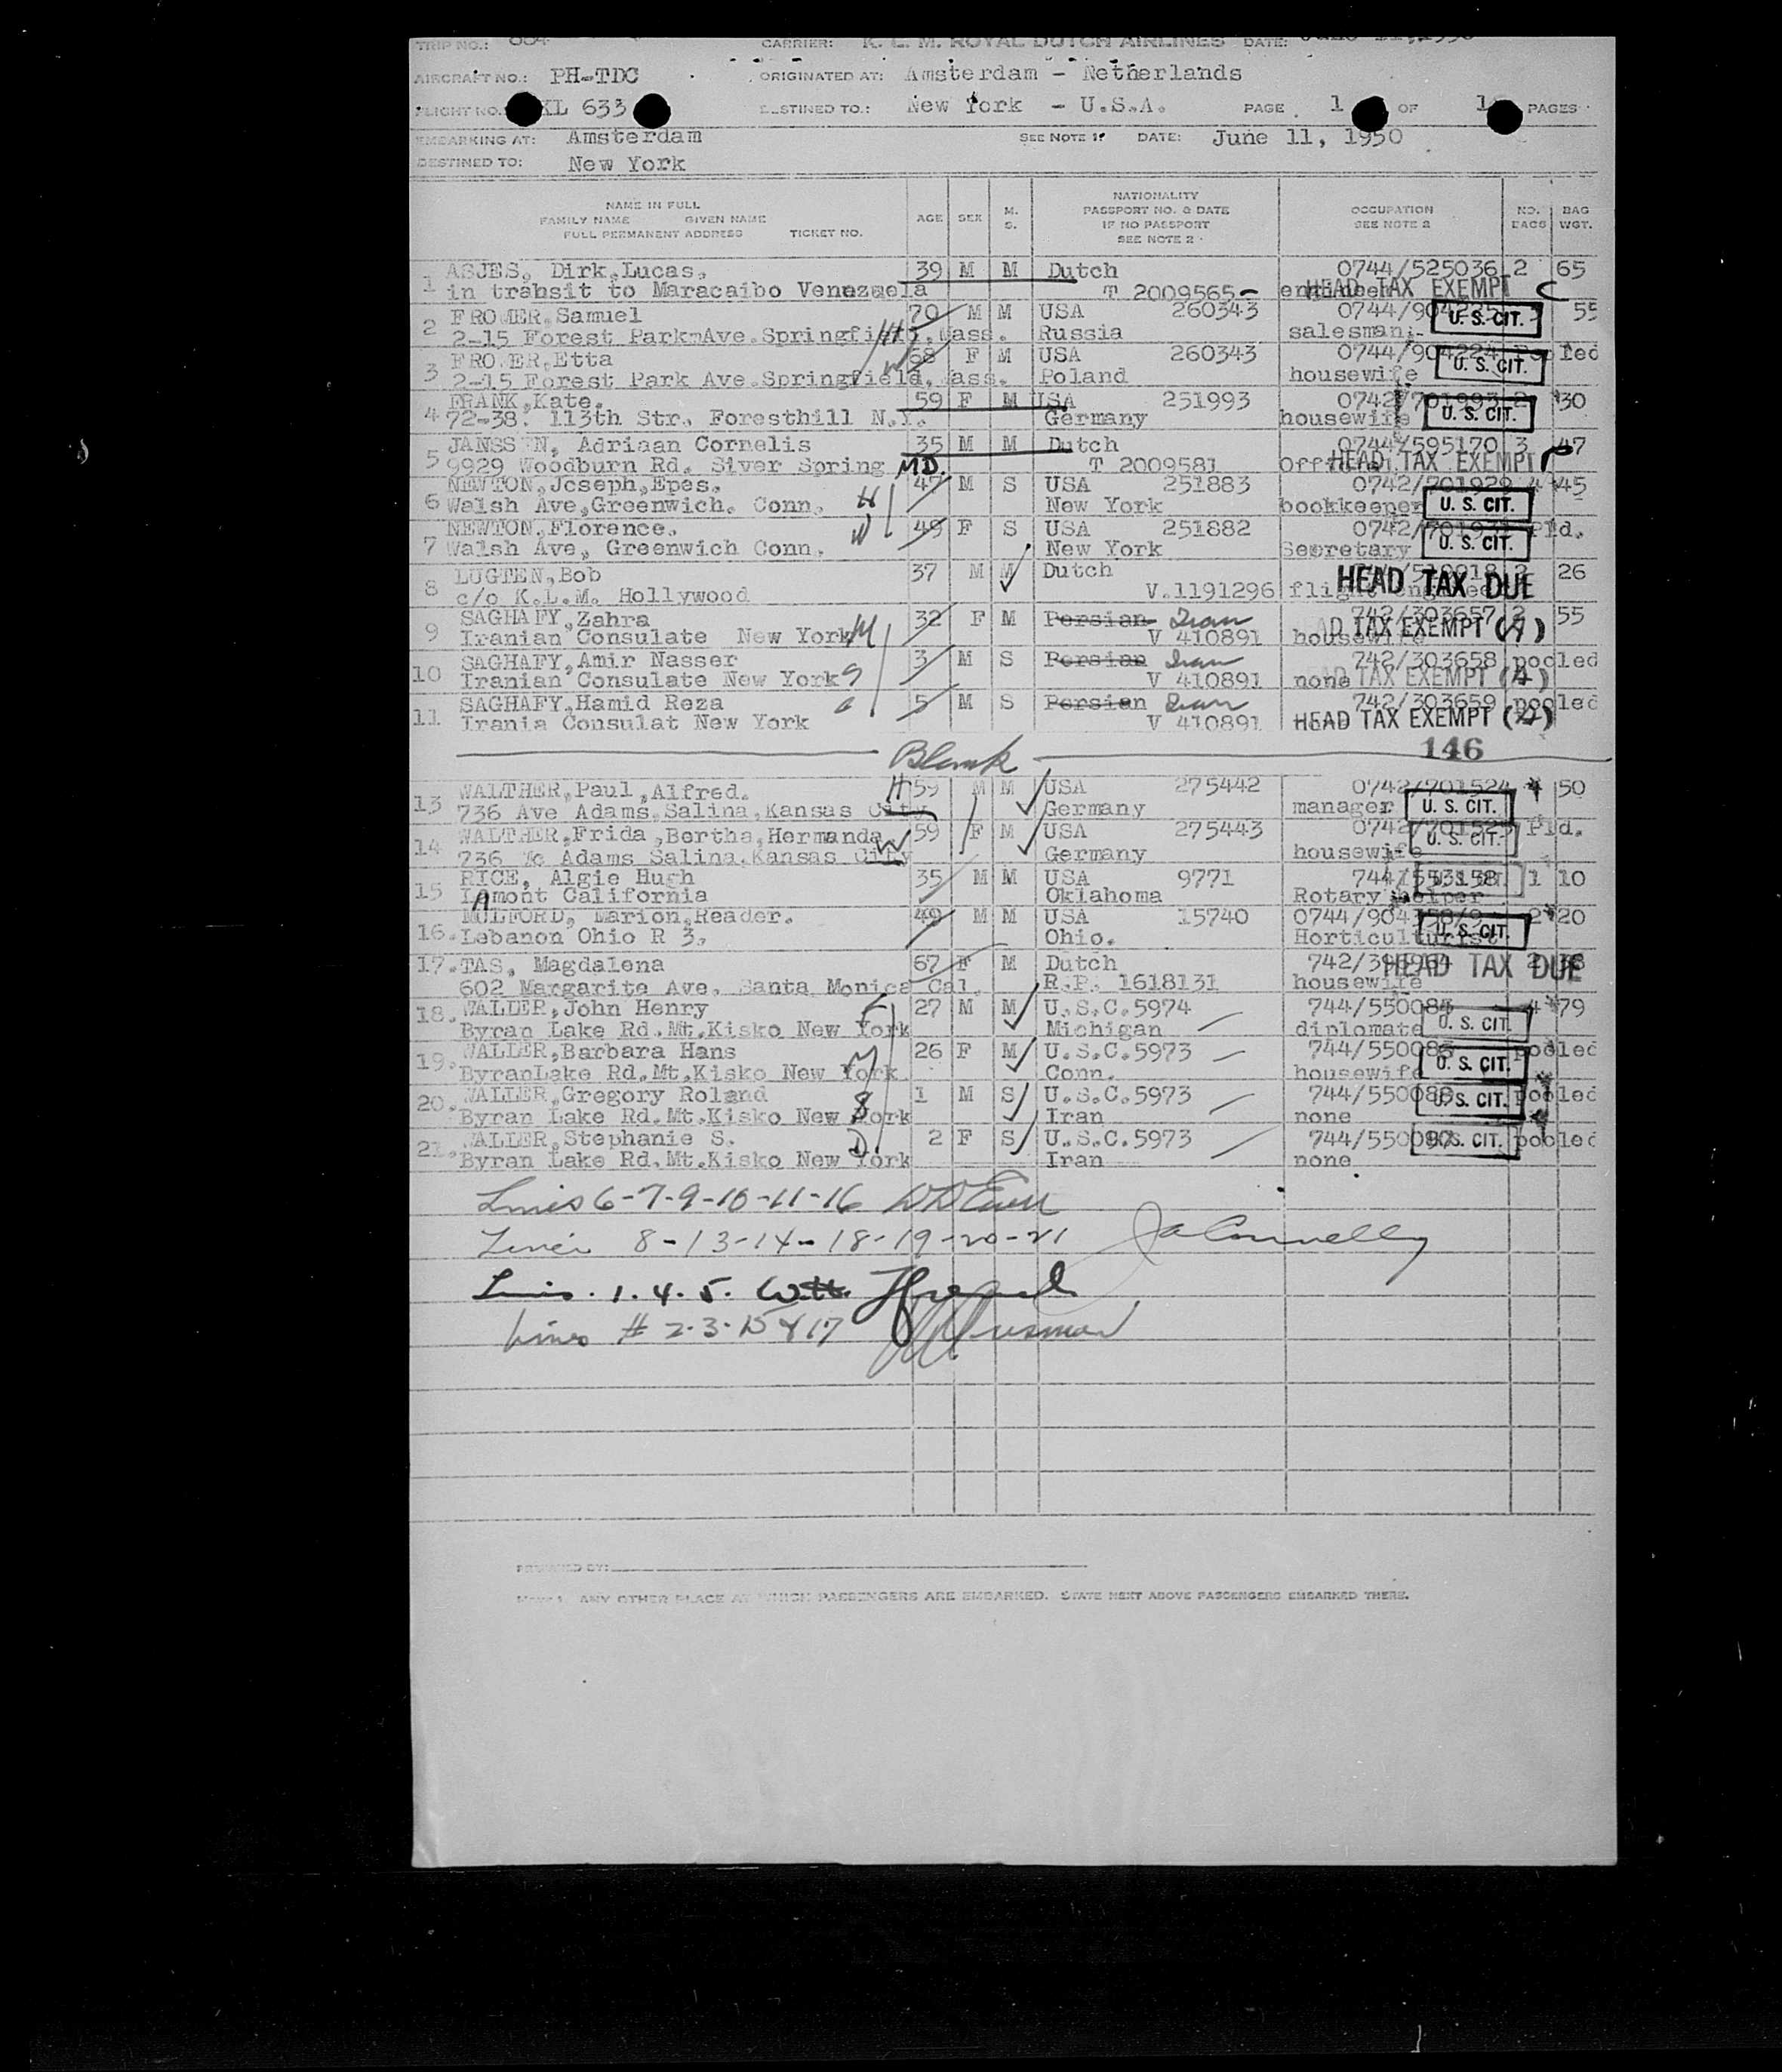 TRIP NO.: CARRIER: K. L. M. ROYAL DUTCH AIRLINES DATE:
AIRCRAFT NO.: PH-TDC ORIGINATED AT: Amsterdam - Netherlands
FLIGHT NO.: KL 633 DESTINED TO.: New York - U.S.A. PAGE 1 OF PAGES
EMBARKING AT: Amsterdam SEE NOTE 1. DATE: June 11, 1950
DESTINED TO: New York
NAME IN FULL
FAMILY NAME GIVEN NAME
FULL PERMANENT ADDRESS TICKET NO.
AGE SEX M. S.
NATIONALITY
PASSPORT NO. & DATE
IF NO PASSPORT
SEE NOTE 2
OCCUPATION
SEE NOTE 2
NO. BAGS BAG WGT.
1 ASJES, Dirk,Lucas, 39 M M Dutch 0744/525036 2 65
in transit to Maracaibo Venezuela T 2009565 HEAD TAX EXEMPT C
2 FROMER,Samuel 70 M M USA 260343 55
2-15 Forest Park-Ave.Springfield, Mass. H Russia salesman. U. S. CIT.
3 FROMER,Etta 68 F M USA 260343 0744/904224 pooled
2-15 Forest Park Ave.Springfield, Mass. W Poland housewife U. S. CIT.
4 FRANK,Kate. 59 F M USA 251993 0742/701993 2 30
72-38. 113th Str. Foresthill N.Y. Germany housewife U. S. CIT.
5 JANSSEN, Adriaan Cornelis 35 M M Dutch 0744/595170 3 47
9929 Woodburn Rd. Siver Spring MD. T 2009581 HEAD TAX EXEMPT
6 NEWTON,Joseph,Epes. 47 M S USA 251883 0742/701929 4 45
Walsh Ave,Greenwich. Conn. H New York bookkeeper U. S. CIT.
7 NEWTON,Florence. 49 F S USA 251882 Pld.
Walsh Ave, Greenwich Conn. W New York Secretary U. S. CIT.
8 LUGTEN,Bob 37 M M Dutch 2 26
c/o K.L.M. Hollywood V.1191296 HEAD TAX DUE
9 SAGHAFY,Zahra 32 F M Persian Iran 742/303657 2 55
Iranian Consulate New York M V 410891 housewife HEAD TAX EXEMPT (A)
10 SAGHAFY,Amir Nasser 3 M S Persian Iran 742/303658 pooled
Iranian Consulate New York S V 410891 none HEAD TAX EXEMPT (A)
11 SAGHAFY,Hamid Reza 5 M S Persien Iran 742/303659 pooled
Irania Consulat New York V 410891 HEAD TAX EXEMPT (A)
Blank 146
13 WALTHER,Paul,Alfred. H 59 M M USA 275442 0742/701524 4 50
736 Ave Adams.Salina.Kansas City Germany manager U. S. CIT.
14 WALTHER,Frida,Bertha,Hermanda W 59 F M USA 275443 0742/701525 Pld.
736 Adams Salina.Kansas City Germany housewife U. S. CIT.
15 RICE, Algie Hugh 35 M M USA 9771 744/553158 1 10
Lamont California Oklahoma Rotary helper
16. MULFORD, Marion,Reader. 49 M M USA 15740 2 20
Lebanon Ohio R 3. Ohio. Horticulturist U. S. CIT.
17. TAS, Magdalena 67 F M Dutch HEAD TAX DUE
602 Margarita Ave. Santa Monica Cal. R.P. 1618131 housewife
18. WALLER,John Henry 27 M M U.S.C.5974 4 79
Byran Lake Rd.Mt.Kisko New York Michigan diplomate U. S. CIT.
19. WALLER,Barbara Hans 26 F M U.S.C.5973 pooled
ByranLake Rd.Mt.Kisko New York M Conn. housewife U. S. CIT.
20. WALLER,Gregory Roland 1 M S U.S.C.5973 pooled
Byran Lake Rd.Mt.Kisko New York S Iran none U. S. CIT.
21. WALLER,Stephanie S. 2 F S U.S.C.5973 pooled
Byran Lake Rd.Mt.Kisko New York D Iran none U. S. CIT.
Lines 6-7-9-10-11-16
Lines 8-13-14-18-19-20-21 Connelly
Lines. 1. 4. 5.
Lines # 2-3-15 & 17
PREPARED BY:
NOTE 1. ANY OTHER PLACE AT WHICH PASSENGERS ARE EMBARKED. STATE NEXT ABOVE PASSENGERS EMBARKED THERE.